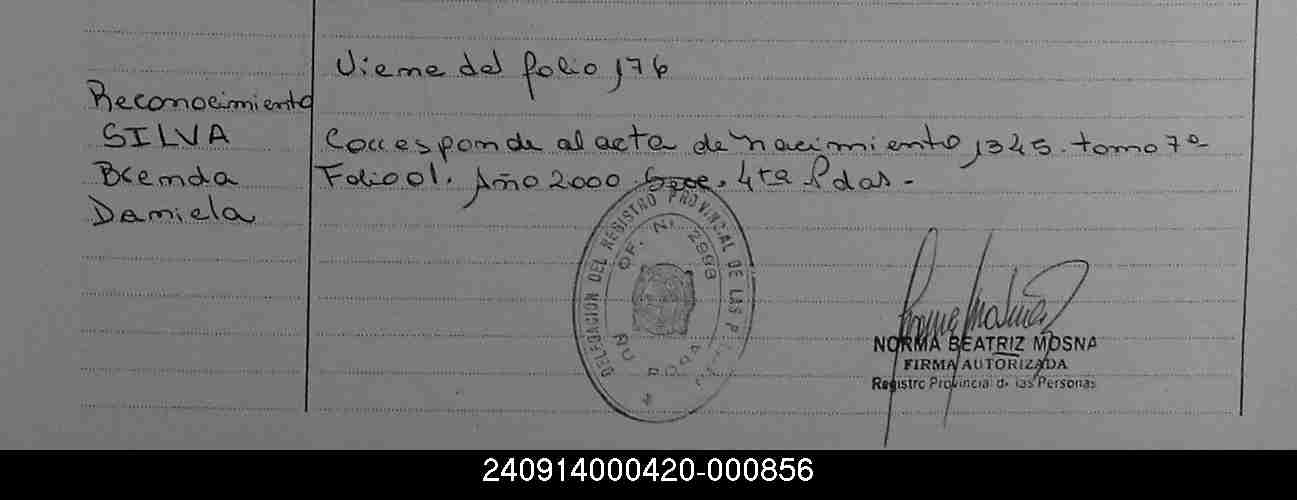 Viene del folio 176
Reconocimiento
SILVA
Brenda
Daniela
Corresponde al acta de nacimiento 1345. tomo 7º
Folio 01. Año 2000. 4ta Pdas.-
DELEGACION DEL REGISTRO PROVINCIAL DE LAS
OF. Nº 2998
NORMA BEATRIZ MOSNA
FIRMA AUTORIZADA
Registro Provincial de las Personas
240914000420-000856